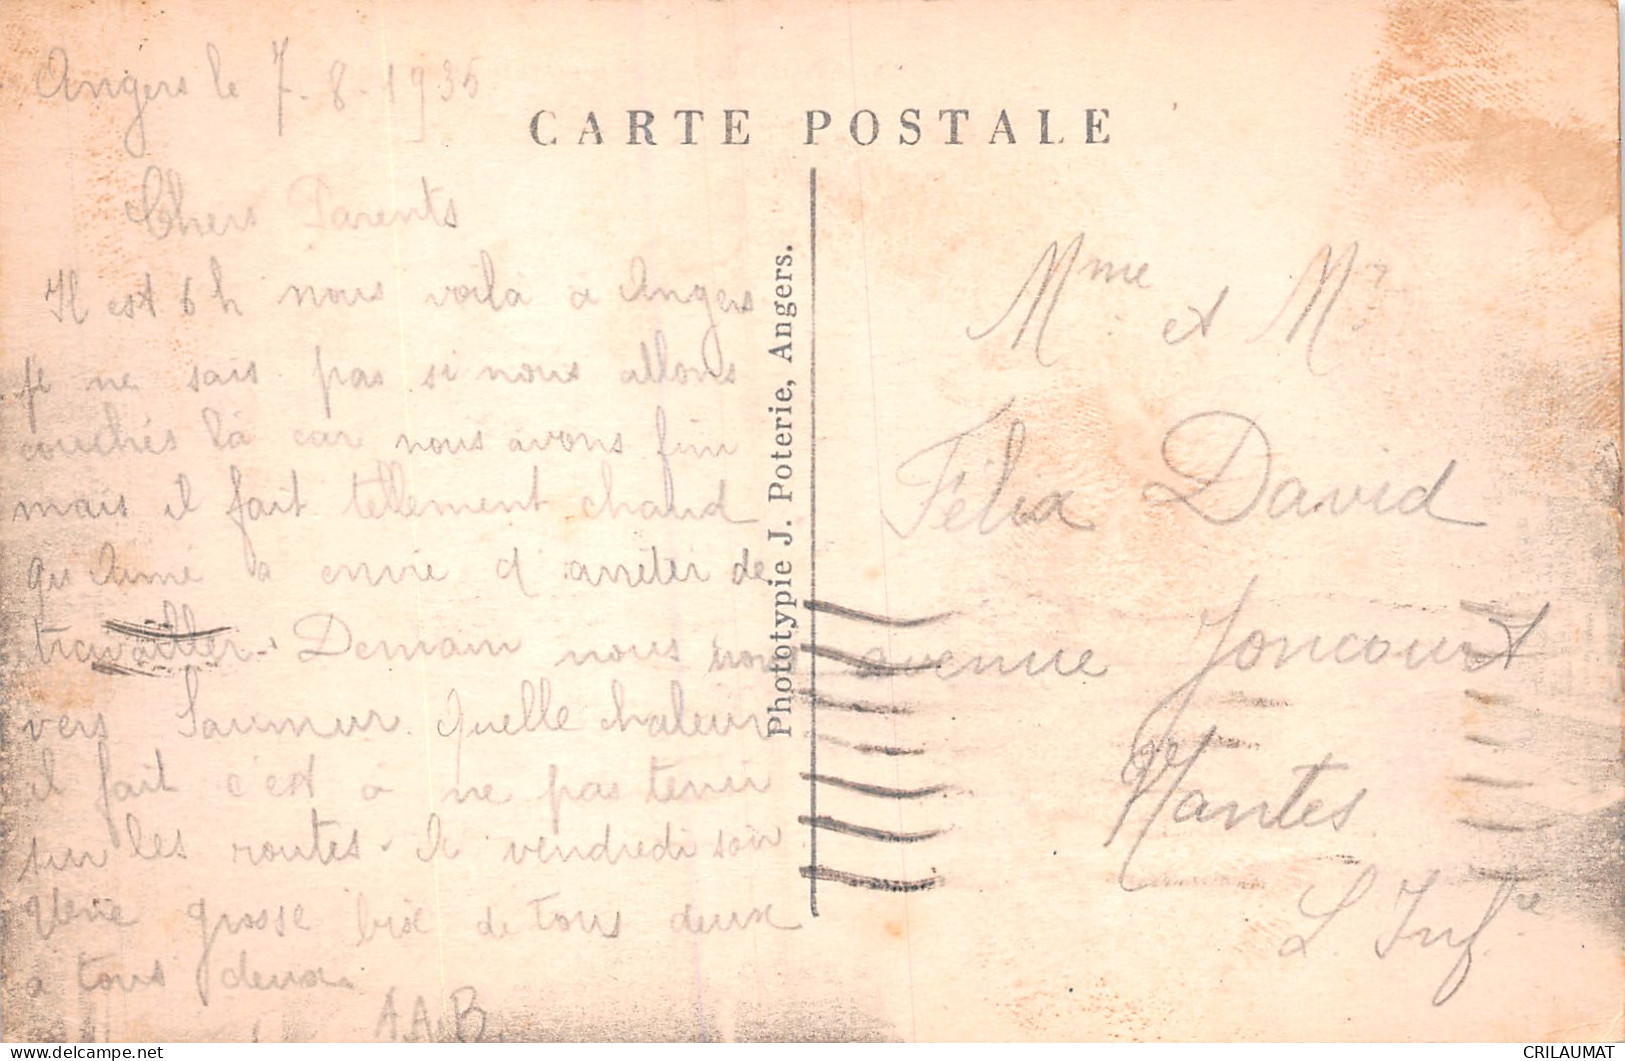 Angers le 7-8-1935
CARTE POSTALE
Chers Parents
Il est 6 h nous voilà à Angers
je ne sais pas si nous allons
couchés là car nous avons fini
mais il fait tellement chaud
qu'Aimé a envie d'arrêter de
travailler. Demain nous irons
vers Saumur. Quelle chaleur
il fait c'est à ne pas tenir
sur les routes. A vendredi soir
grosse bise de tous deux
à tous deux.
A.A.B.
Phototypie J. Poterie, Angers.
Mme et Mr
Félix David
avenue Joncourt
Nantes
L. Infre
CRILAUMAT